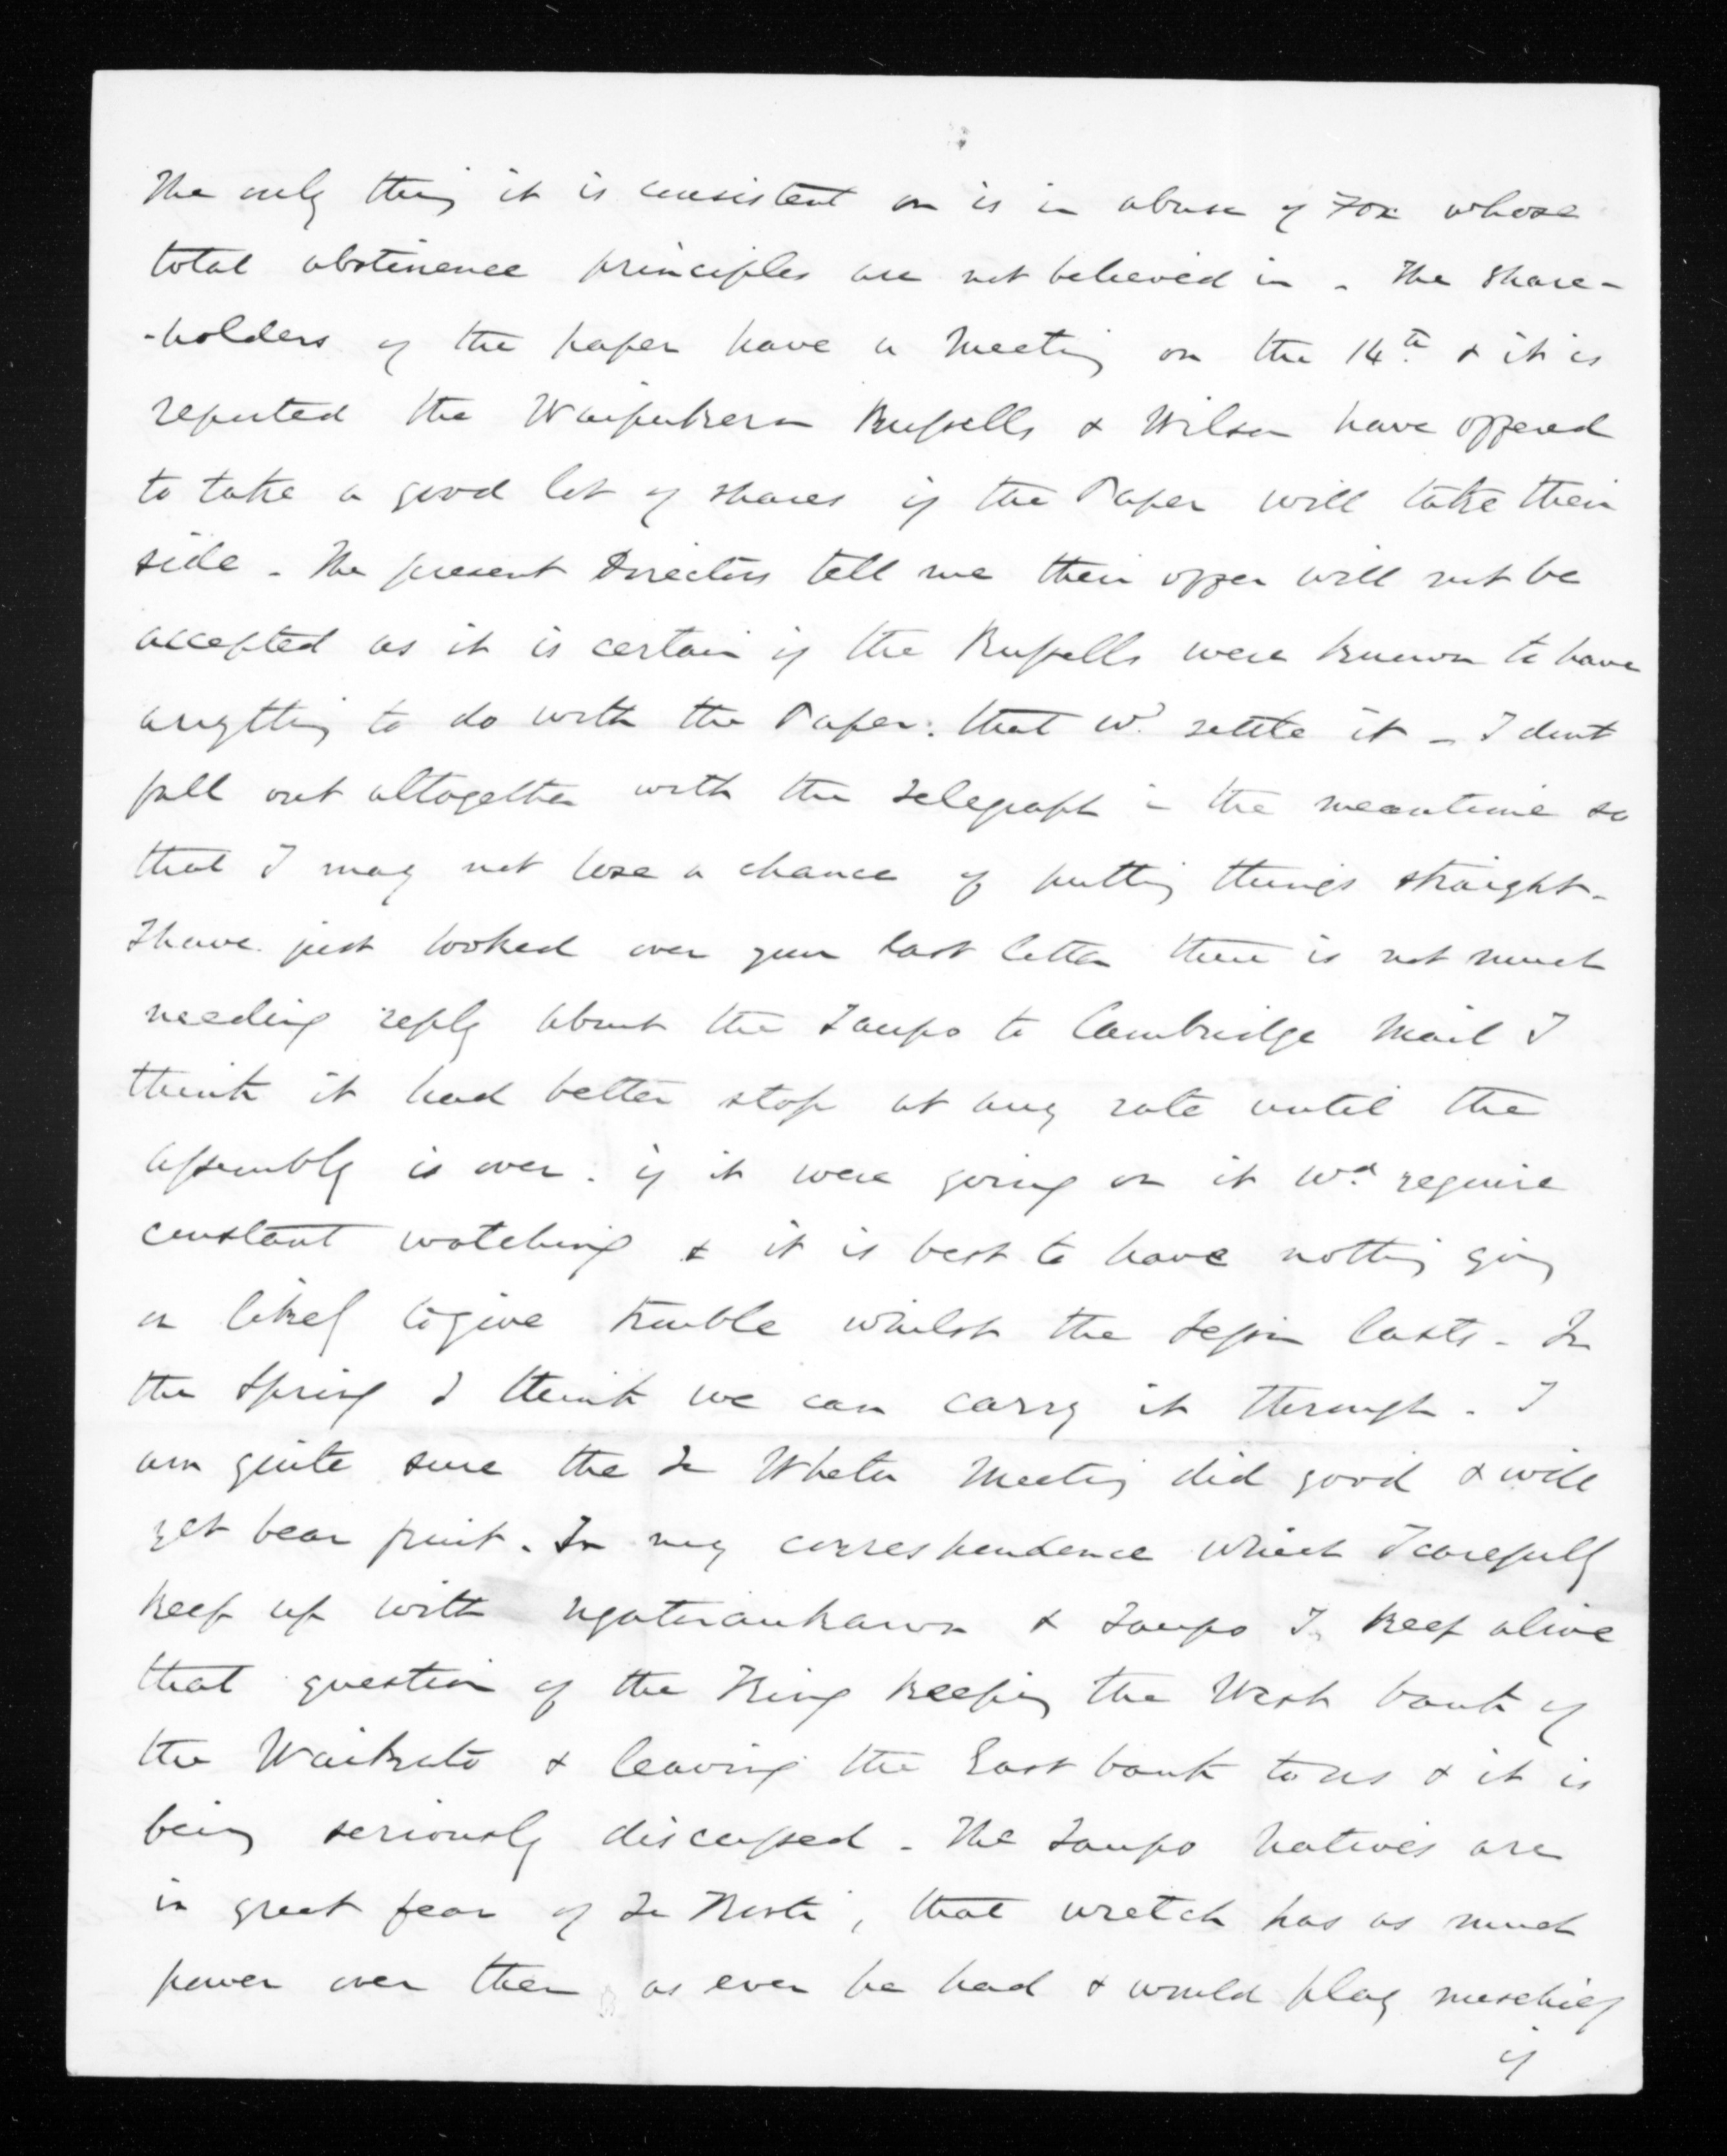 The only thing it is consistent on is in abuse of Fox whose
total abstinence principles are not believed in - The Share-
-holders of the paper have a meeting on the 14th & it is
reported the Waipukerau Russells & Wilson have offered
to take a good lot of shares if the Paper will take their
side - The present Directors tell me their offer will not be
accepted as it is certain if the Russells were known to have
anything to do with the Paper: that wd settle it - I dont
fall out altogether with the Telegraph in the meantime so
that I may not lose a chance of putting things straight -
I have just looked over your last letter there is not much
needing reply about the Taupo to Cambridge Mail I
think it had better stop at any rate until the
Assembly is over. if it were going on it wd require
constant watching & it is best to have nothing going
on likely to give trouble whilst the Session lasts - In
the Spring I think we can carry it through - I
am quite sure the Te Whetu Meeting did good & will
yet bear fruit. In my correspondence which I carefully
keep up with Ngatiraukawa & Taupo I keep alive
that question of the King keeping the West bank of
the Waikato & leaving the East bank to us & it is
being seriously discussed - The Taupo Natives are
in great fear of Te Kooti, that wretch has as much
power over them as ever he had & would play mischief
if